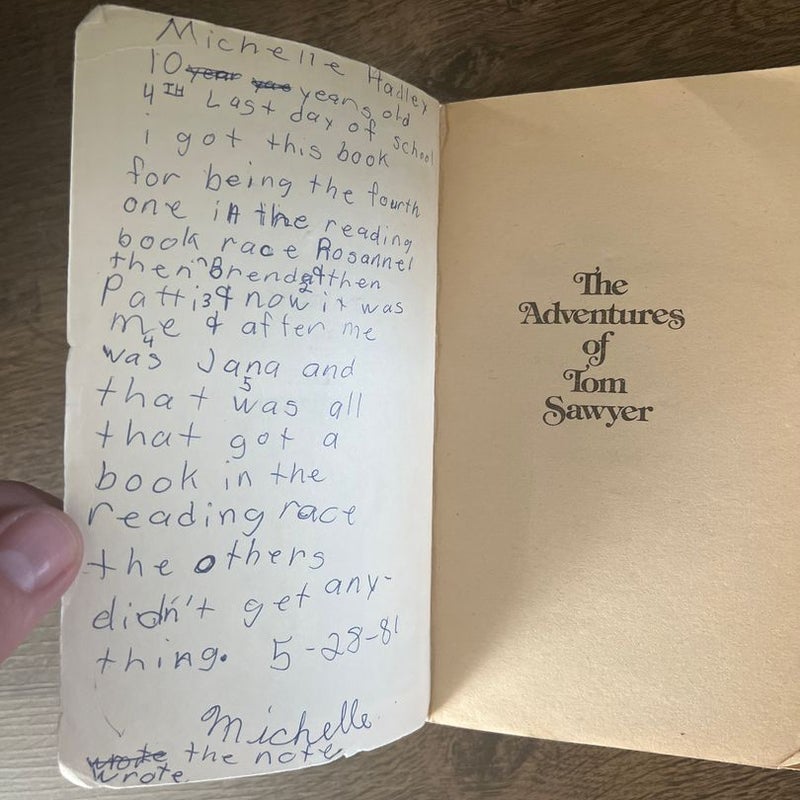 Michelle Hadley
10 year yae years old
4TH Last day of school
i got this book
for being the fourth
one in the reading
book race Rosanne1
then Brenda &then
2
Patti3& now it was
me & after me
4
was Jana and
5
that was all
that got a
book in the
reading race
the others
didn't get any-
thing. 5-28-81
Michelle
wrote the note
wrote
The
Adventures
of
Tom
Sawyer